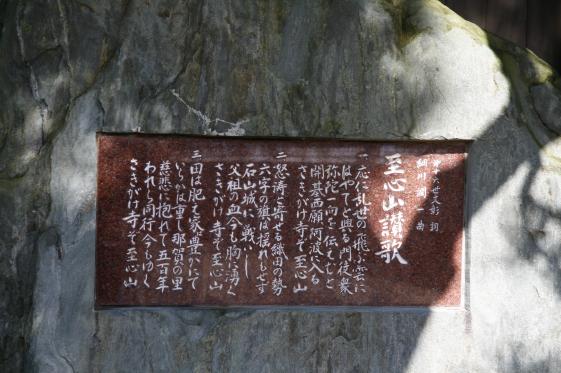 至心山讃歌
十八世文彰 詞
細川 曲
一 応仁乱世の飛ぶ雲に
はやてと興る門徒衆
弥陀一向を伝えむと
開基西願阿波に入る
さきがけ寺ぞ至心山
二 怒涛と寄せる織田の勢
六字の旗は揺れもせず
石山城に戦いし
父祖の血今も胸に湧く
さきがけ寺ぞ至心山
三 田は肥え家は豊かにて
いらかは重し那賀の里
慈悲に抱れて五百年
われら同行今もゆく
さきがけ寺ぞ至心山